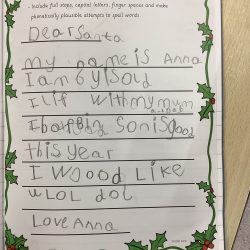 - Include full stops, capital letters, finger spaces and make
phonetically plausible attempts to spell words.
Dear Santa
my name is Anna
I am 6 yis old
I lif with my mum
and dad
I hav bin so n is good
this year
I woood Like
a LOL dol
Love Anna